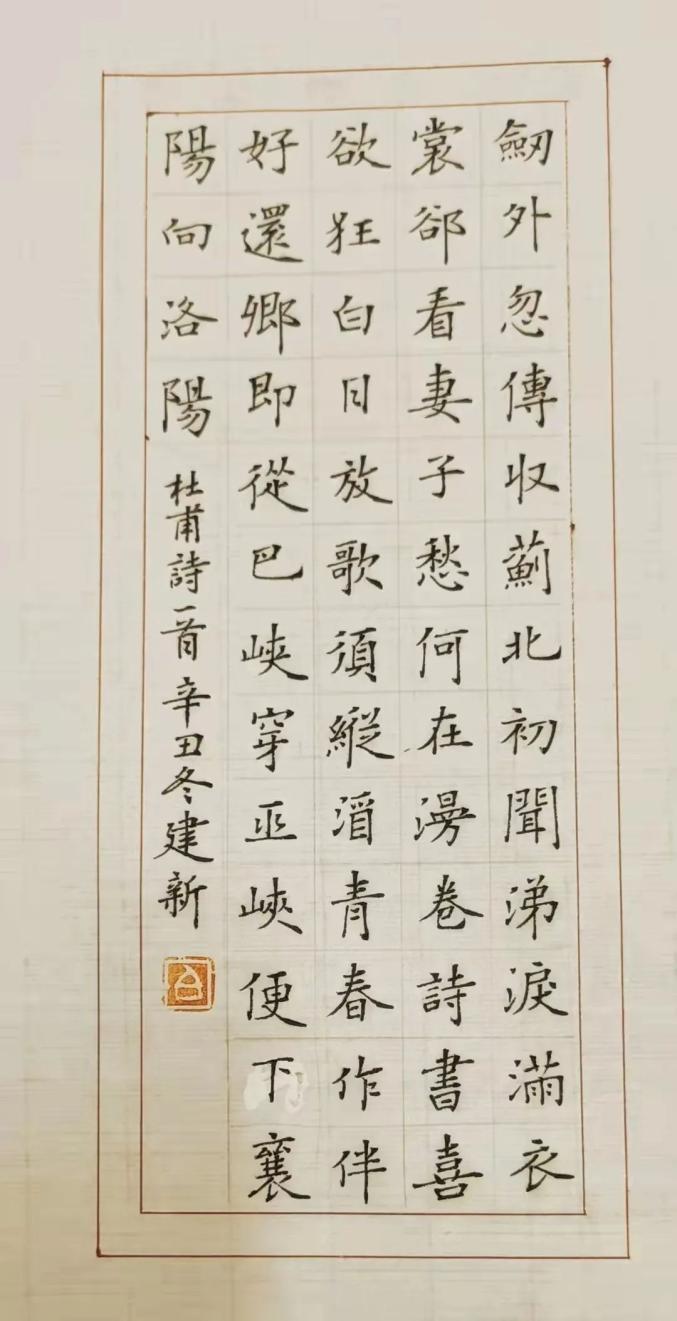 劒外忽傳収薊北初聞涕淚滿衣
裳郤看妻子愁何在漫卷詩書喜
欲狂白日放歌須縱酒青春作伴
好還鄉即從巴峽穿巫峽便下襄
陽向洛陽 杜甫詩一首辛丑冬建新